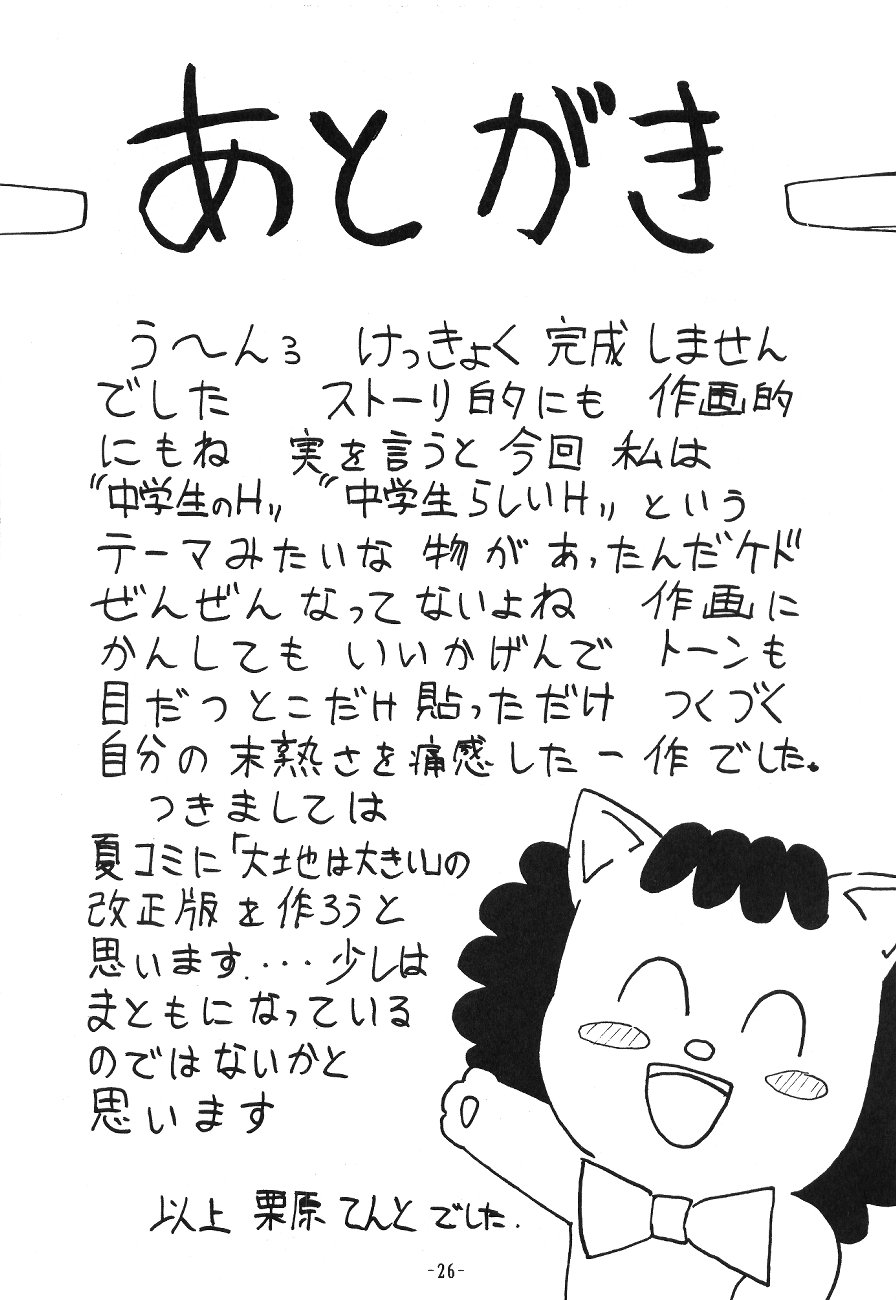 あとがき
う〜んろ けっきょく 完成しません
でした ストーリ的にも 作画的
にもね 実を言うと 今回 私は
"中学生のH" "中学生らしいH" という
テーマみたいな 物が あったんだケド
ぜんぜん なってないよね 作画に
かんしても いいかげんで トーンも
目だつとこだけ貼っただけ つくづく
自分の 末熟さを痛感した一作でした。
つきましては
夏コミに「大地は大きい」の
改正版を作ろうと
思います....少しは
まともになっている
のではないかと
思います
以上 栗原てんと でした.
-26-